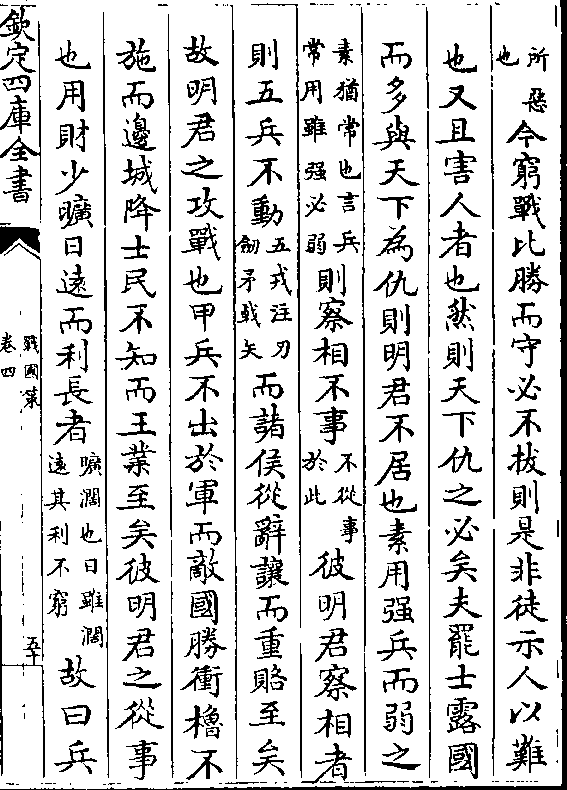 所惡也今窮戰比勝而守必不拔則是非徒示人以難
也又且害人者也然則天下仇之必矣夫罷士露國
而多與天下為仇則明君不居也素用强兵而弱之
素猶常也言兵常用雖强必弱則察相不事不從事於此彼明君察相者
則五兵不動五戎注刀劒矛㦸矢而諸侯從辭讓而重賂至矣
故明君之攻戰也甲兵不出於軍而敵國勝衝櫓不
施而邊城降士民不知而王業至矣彼明君之從事
也用財少曠日遠而利長者曠濶也日雖濶遠其利不窮故曰兵
欽定四庫全書
戰國策
卷四
五十